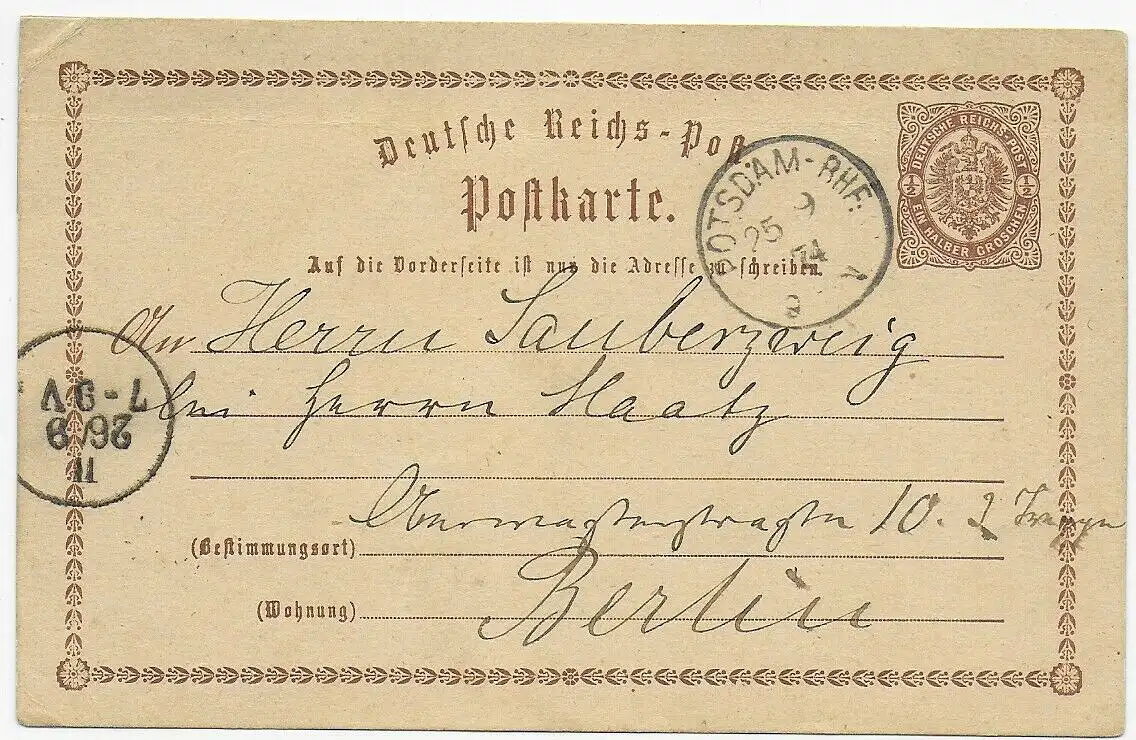 Deutsche Reichs-Post
Postkarte.
Auf die Vorderseite ist nur die Adresse zu schreiben.
DEUTSCHE REICHS-POST
1/2 1/2
EIN HALBER GROSCHEN
POTSDAM-BHF.
25 9
74
9
An Herrn Sauberzweig
bei Herrn Maatz
10. 2
(Bestimmungsort)
Berlin
(Wohnung)
II
26/9
7-9 V